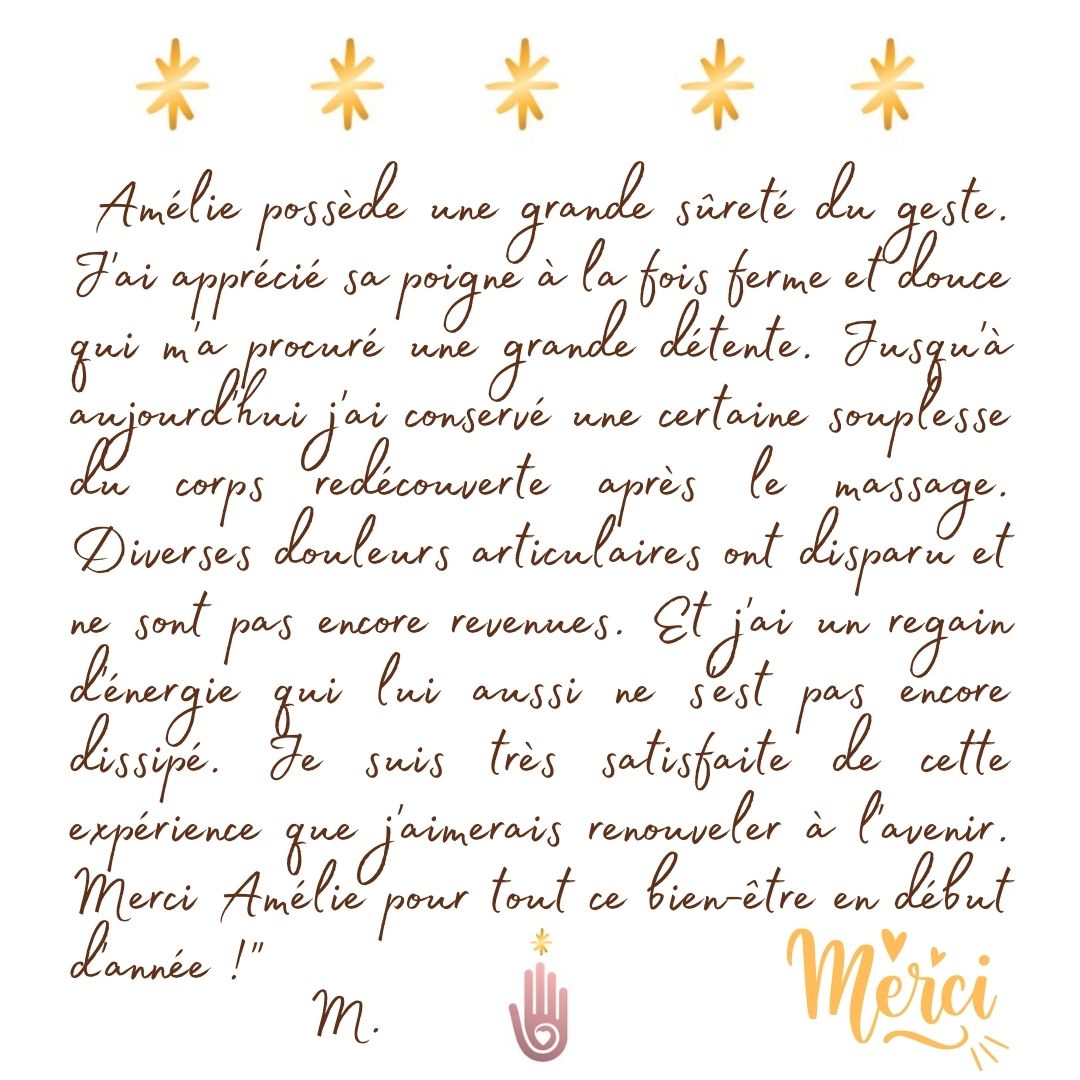 Amélie possède une grande sûreté du geste.
J'ai apprécié sa poigne à la fois ferme et douce
qui m'a procuré une grande détente. Jusqu'à
aujourd'hui j'ai conservé une certaine souplesse
du corps redécouverte après le massage.
Diverses douleurs articulaires ont disparu et
ne sont pas encore revenues. Et j'ai un regain
d'énergie qui lui aussi ne s'est pas encore
dissipé. Je suis très satisfaite de cette
expérience que j'aimerais renouveler à l'avenir.
Merci Amélie pour tout ce bien-être en début
d'année !"
M.
Merci